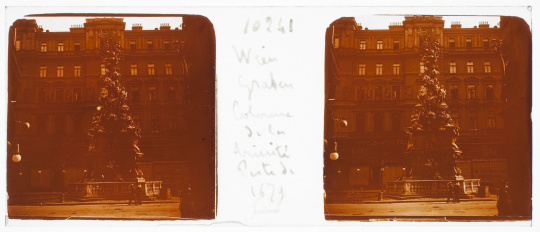 10241
Wien
Graben
Colonne
de la
Trinité
Peste de
1679